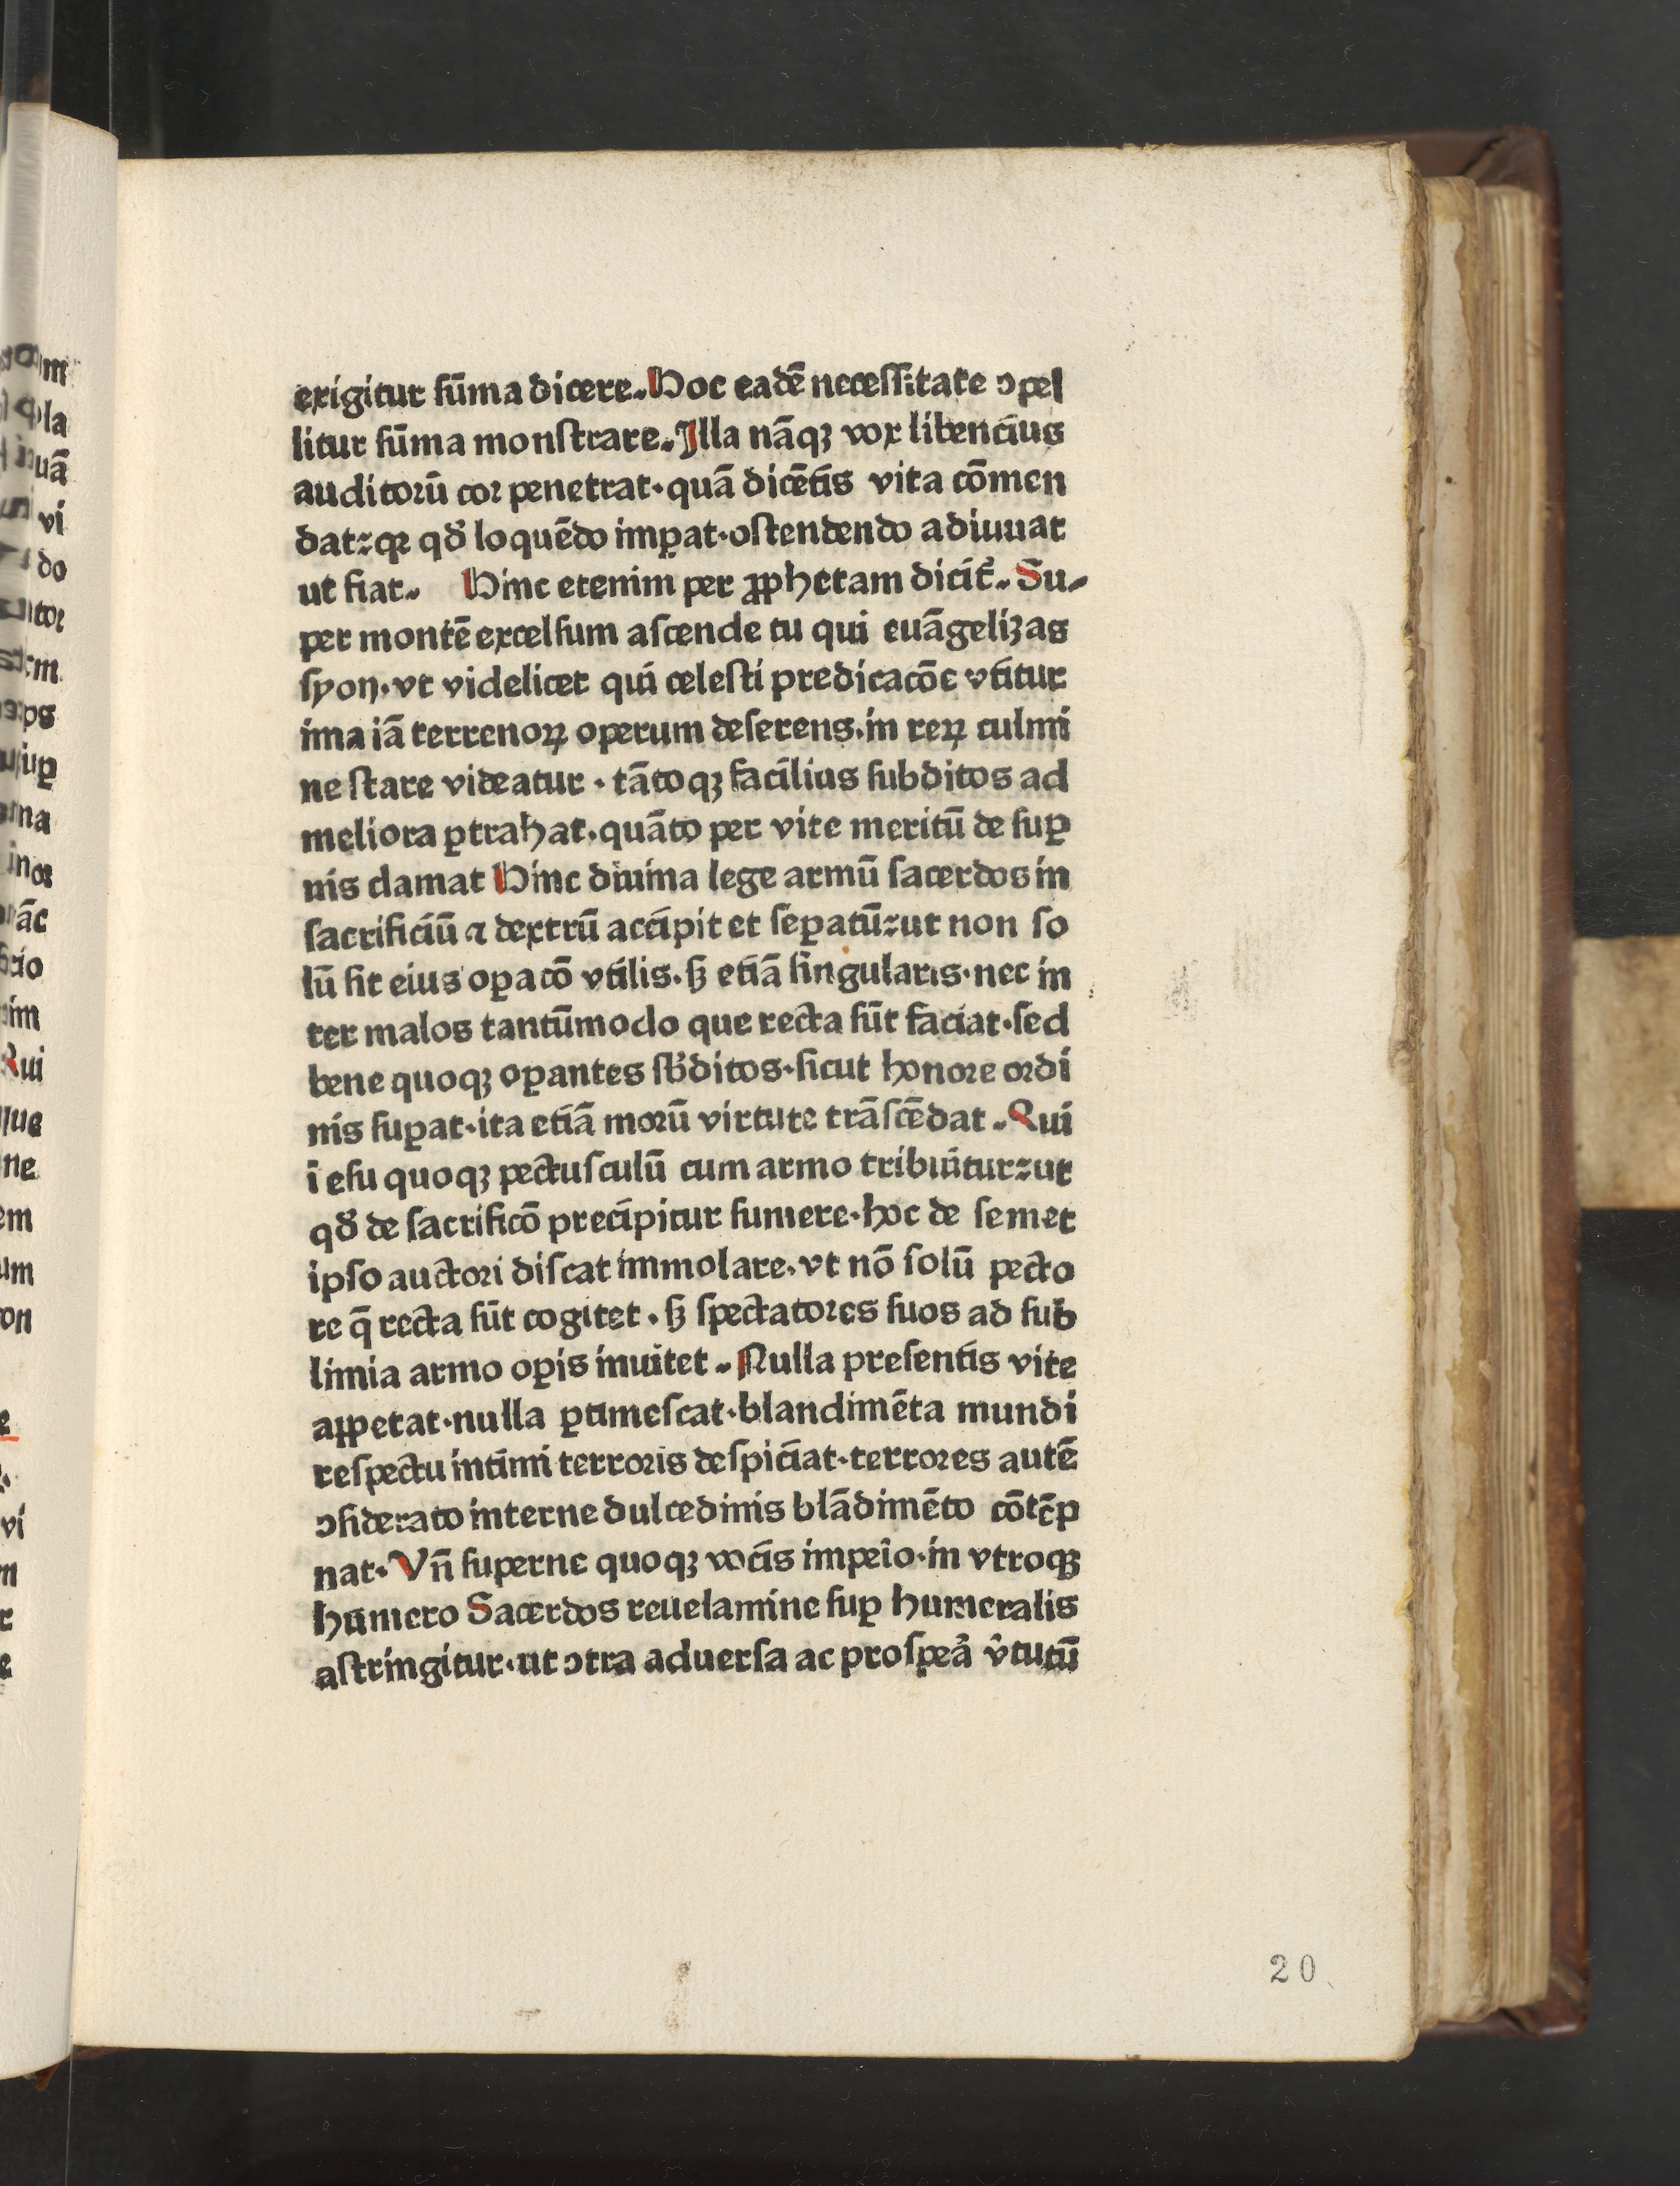 exigitur sūma dicere. Hoc eadē necessitate ꝯpel
litur sūma monstrare. Illa nāqꝫ vox libencius
auditorū cor penetrat. quā dicētis vita cōmen
dat: qꝛ qď loquēdo imꝑat. ostendendo adiuuat
ut fiat. Hinc etenim per ꝓphetam dicit̉. Su-
per montē excelsum ascende tu qui euāgelizas
syon. vt videlicet qui celesti predicacōe vtitur
ima iā terrenoꝝ operum deserens. in reꝝ culmi
ne stare videatur. tātoqꝫ facilius subditos ad
meliora ꝑtrahat. quāto per vite meritū de suꝑ
nis clamat Hinc diuina lege armū sacerdos in
sacrificiū ⁊ dextrū accipit et seꝑatū: ut non so
lū sit eius oꝑacō vtilis. sꝫ etiā singularis. nec in
ter malos tantūmodo que recta sūt faciat. sed
bene quoqꝫ oꝑantes sb̄ditos. sicut honore ordi
nis suꝑat. ita etiā morū virtute trāscēdat. Qui
i esu quoqꝫ pectusculū cum armo tribuitur: ut
qď de sacrificō precipitur sumere. hoc de semet
ipso auctori discat immolare. vt nō solū pecto
re q̄ recta sūt cogitet. sꝫ spectatores suos ad sub
limia armo oꝑis inuitet. Nulla presentis vite
appetat. nulla ꝑtimescat. blandimēta mundi
respectu intimi terroris despiciat. terrores autē
ꝯsiderato interne dulcedinis blādimēto cōtēp
nat. Vn̄ superne quoqꝫ vocis impeīo. in vtroqꝫ
humero Sacerdos reuelamine suꝑ humeralis
astringitur. ut ꝯtra aduersa ac prospeᷓ v̉tutū
20